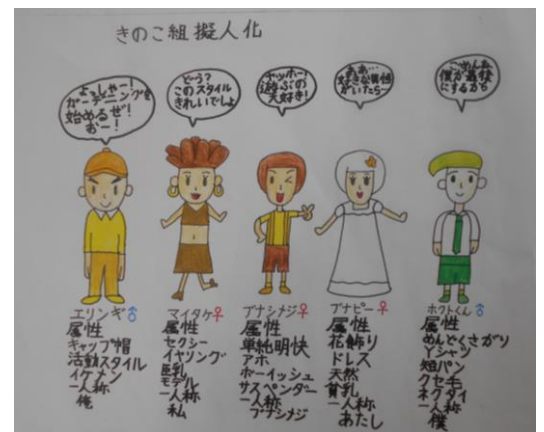 きのこ組擬人化
よっしゃー!
ガーデニングを
始めるぜ!
おー!
どう?
このスタイル
きれいでしょ
ヤッホー!
遊ぶの
大好き!
ああ…
好きな男性
がいたら…
ごめんね
僕が最後
にするから
エリンギ♂
属性
キャップ帽
活動スタイル
イケメン
一人称
俺
マイタケ♀
属性
セクシー
イヤリング
巨乳
モデル
一人称
私
ブナシメジ♀
属性
単純明快
アホ
ボーイッシュ
サスペンダー
一人称
ブナシメジ
ブナピー♀
属性
花飾り
ドレス
天然
貧乳
一人称
あたし
ホクトくん♂
属性
めんどくさがり
Yシャツ
短パン
クセ毛
ネクタイ
一人称
僕